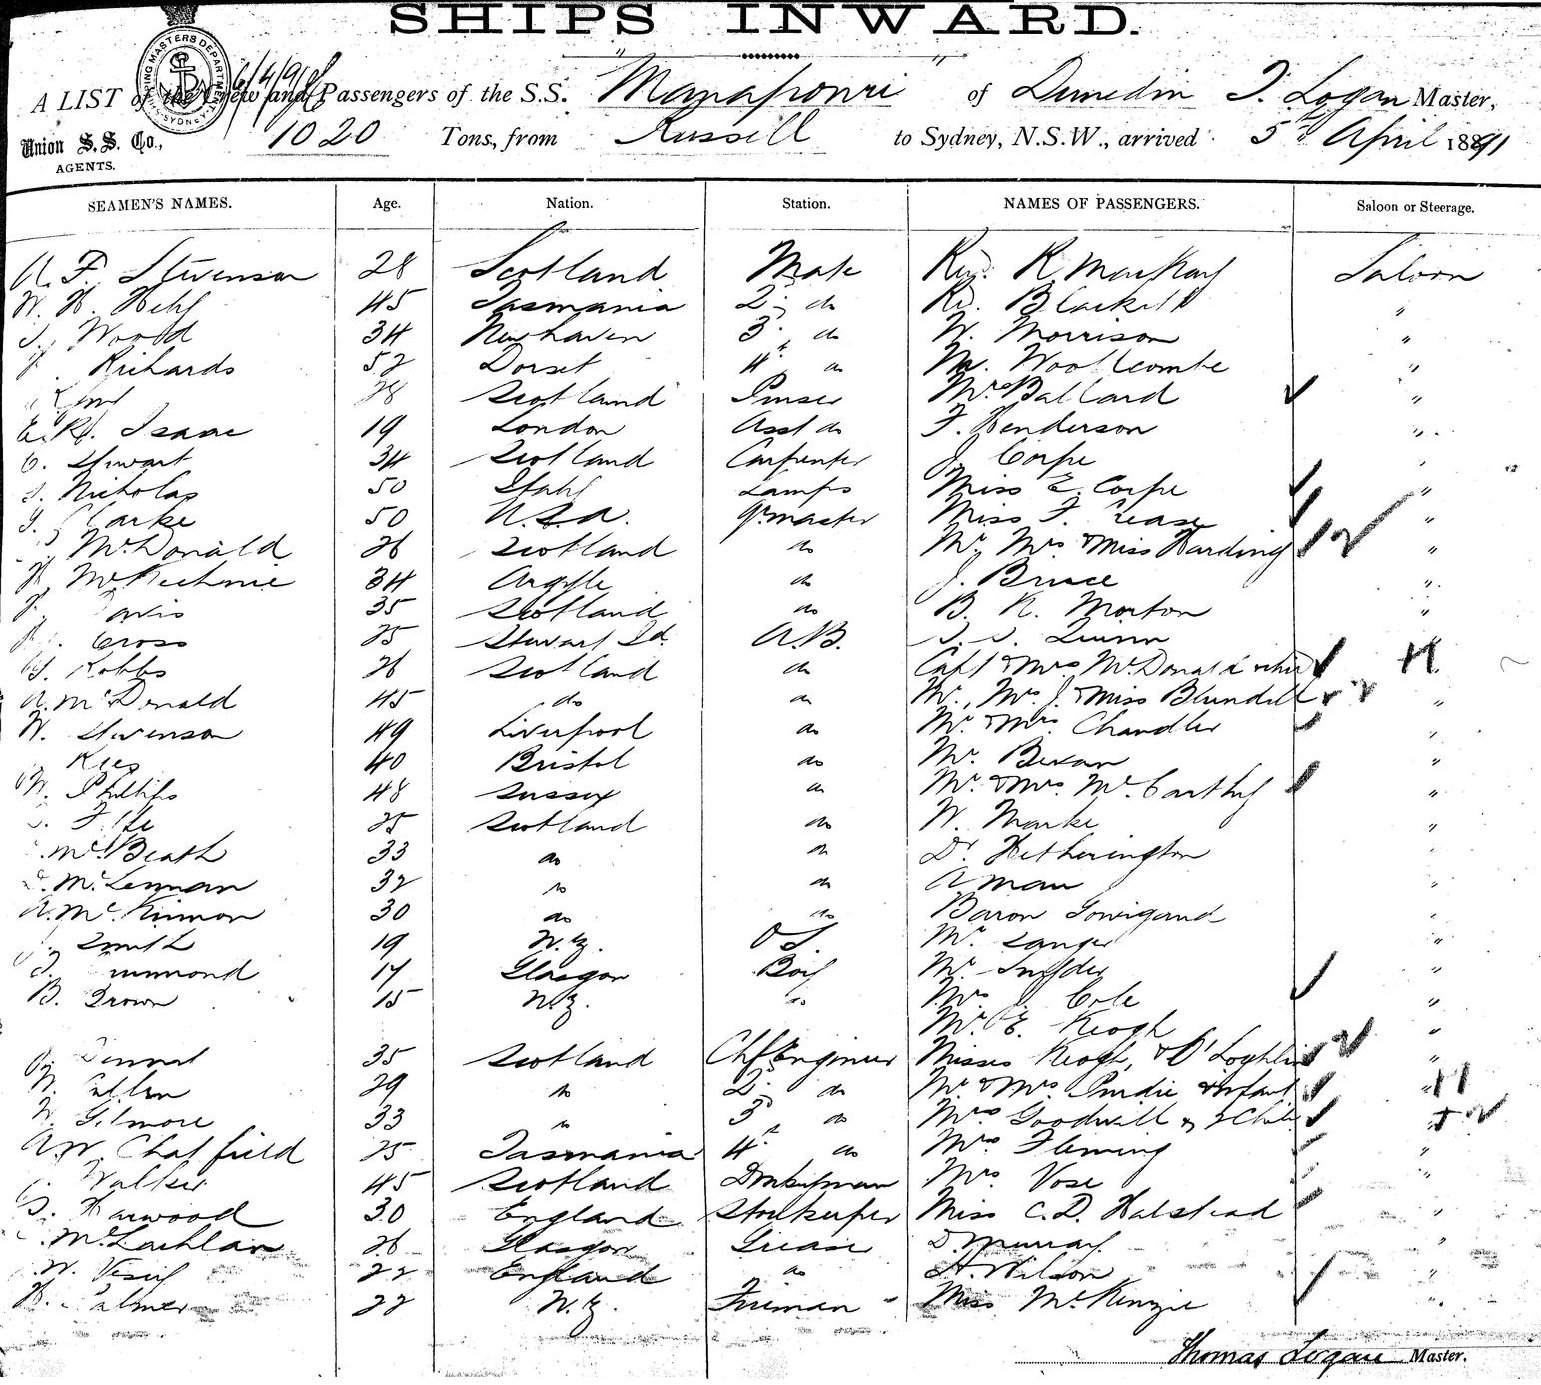 SHIPS INWARD.
SHIPPING MASTERS DEPARTMENT SYDNEY
A LIST of the Crew and Passengers of the S.S. "Manapouri" of Dunedin T. Logan Master,
Union S.S. Co., AGENTS. 1020 Tons, from Russell to Sydney, N.S.W., arrived 5th April 1891
SEAMEN'S NAMES. Age. Nation. Station. NAMES OF PASSENGERS. Saloon or Steerage.
A. F. Stevenson 28 Scotland Mate Rev. R. MacKay Saloon
W. H. 45 Tasmania 2nd do Rev. Blackett "
Wood 34 Newhaven 3rd do W. Morrison "
Richards 52 Dorset 4th do Woollcombe "
28 Scotland Purser Mrs Ballard "
E. R. Isaac 19 London Asst do F. Henderson "
Stewart 34 Scotland Carpenter J. Corpe "
Nicholas 50 Italy Lamps Miss E. Corpe "
Clarke 50 U.S.A. Qr master Miss F. Crease "
McDonald 26 Scotland do Mr. Mrs & Miss Harding "
McKechnie 34 Argyle do J. Bruce "
35 Scotland do B. R. Morton "
Cross 25 Stewart Id. A.B. Quinn
26 Scotland do Capt & Mrs McDonald
A. McDonald 45 do do Mr., Mrs J. & Miss Blundell "
W. Stevenson 49 Liverpool do Mr & Mrs Chandler "
Rees 40 Bristol do Mr. Bevan "
W. Phillips 48 Sussex do Mr. & Mrs. McCarthy "
25 Scotland do W. Marke "
McBeath 33 do do Dr Hetherington "
D. McLennan 32 do do A man "
A. McKinnon 30 do do Baron "
Smith 19 N.Z. O.S. Mr Sanger "
17 Glasgow Boy Mr. Snyder "
B. Brown 15 N.Z. do Mrs J. Cole "
Mr. E. Keogh "
35 Scotland Chf Engineer Misses Keogh, & O'Loghlin "
29 do 2nd do Mr. & Mrs Purdie & Infant "
W. Gilmore 33 do 3rd do Mrs Goodwill & 2 Chil "
A. W. Chatfield 25 Tasmania 4th do Mrs Fleming "
Walker 45 Scotland Donkeyman Mrs Vose "
Harwood 30 England Storekeeper Miss C. D. Halstead "
McLachlan 26 Glasgow Greaser D. Murray "
W. Vesey 22 England do H. Wilson "
H. Palmer 22 N.Z. Fireman Miss McKenzie "
Thomas Logan Master.